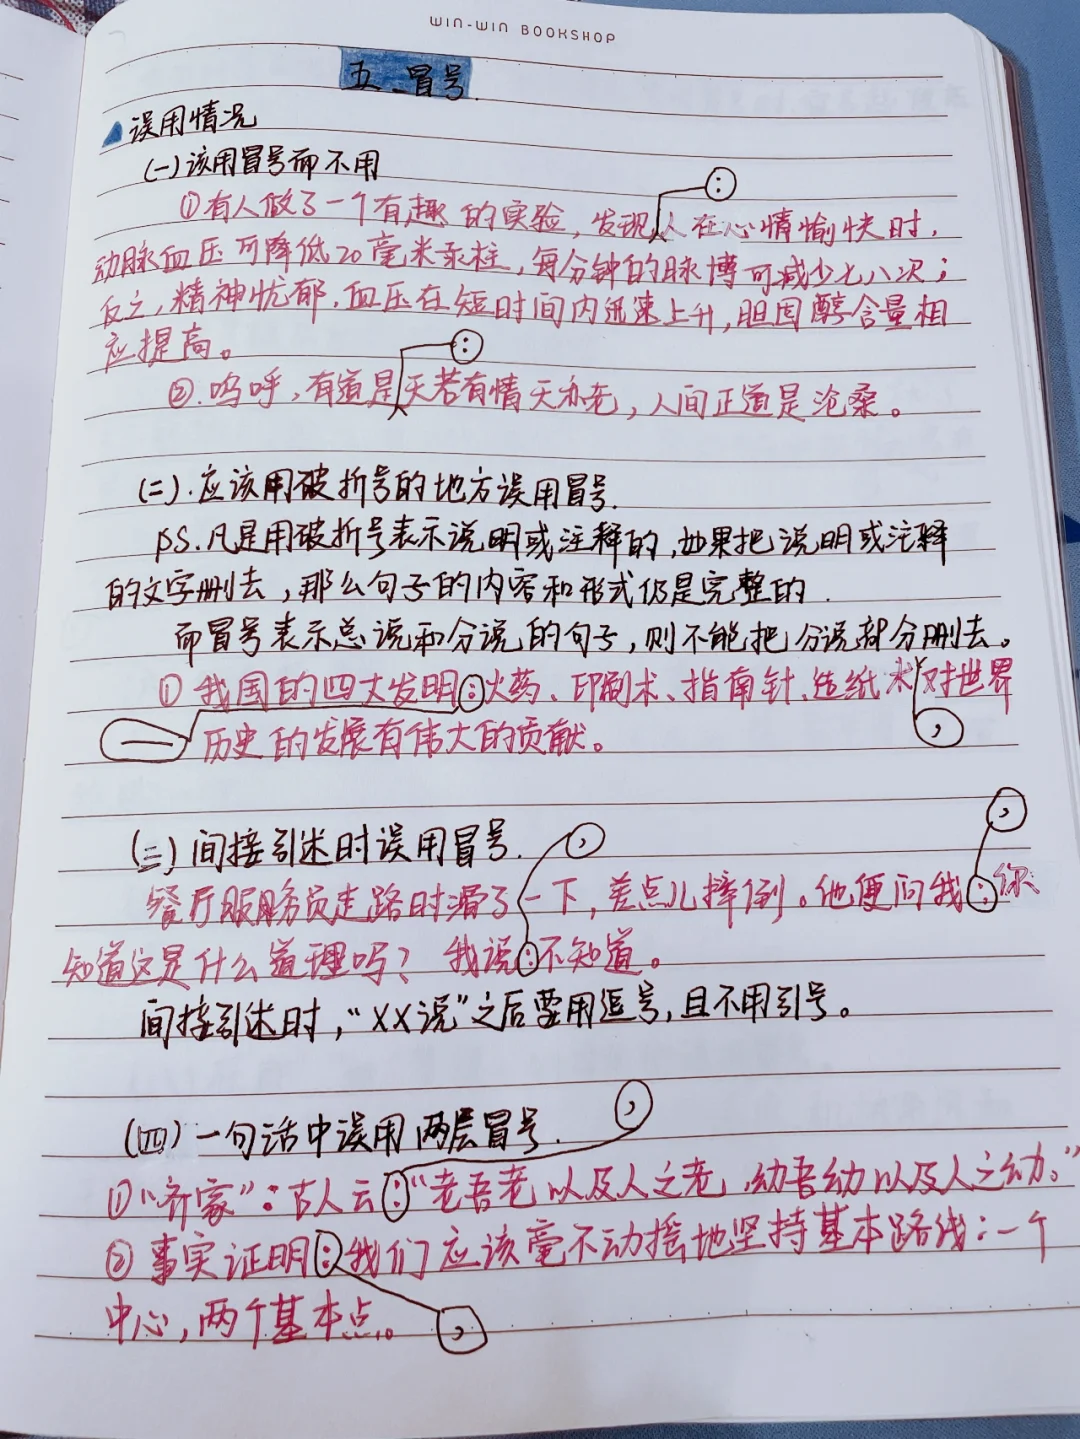 WIN-WIN BOOKSHOP
五、冒号.
误用情况
(一)该用冒号而不用
:
①有人做了一个有趣的实验,发现人在心情愉快时,
动脉血压可降低20毫米汞柱,每分钟的脉搏可减少七八次;
反之,精神忧郁,血压在短时间内迅速上升,胆固醇含量相
应提高。
:
②.呜呼,有道是天若有情天亦老,人间正道是沧桑。
(二).应该用破折号的地方误用冒号.
PS.凡是用破折号表示说明或注释的,如果把说明或注释
的文字删去,那么句子的内容和形式仍是完整的.
而冒号表示总说和分说的句子,则不能把分说部分删去。
①我国的四大发明:火药、印刷术、指南针、造纸术对世界
— 历史的发展有伟大的贡献。 ,
(三)间接引述时误用冒号. , ,
餐厅服务员走路时滑了一下,差点儿摔倒。他便问我:你
知道这是什么道理吗?我说:不知道。
间接引述时,“XX说”之后要用逗号,且不用引号。
,
(四)一句话中误用两层冒号.
①“齐家”:古人云:“老吾老以及人之老,幼吾幼以及人之幼。”
②事实证明:我们应该毫不动摇地坚持基本路线:一个
中心,两个基本点。 ,